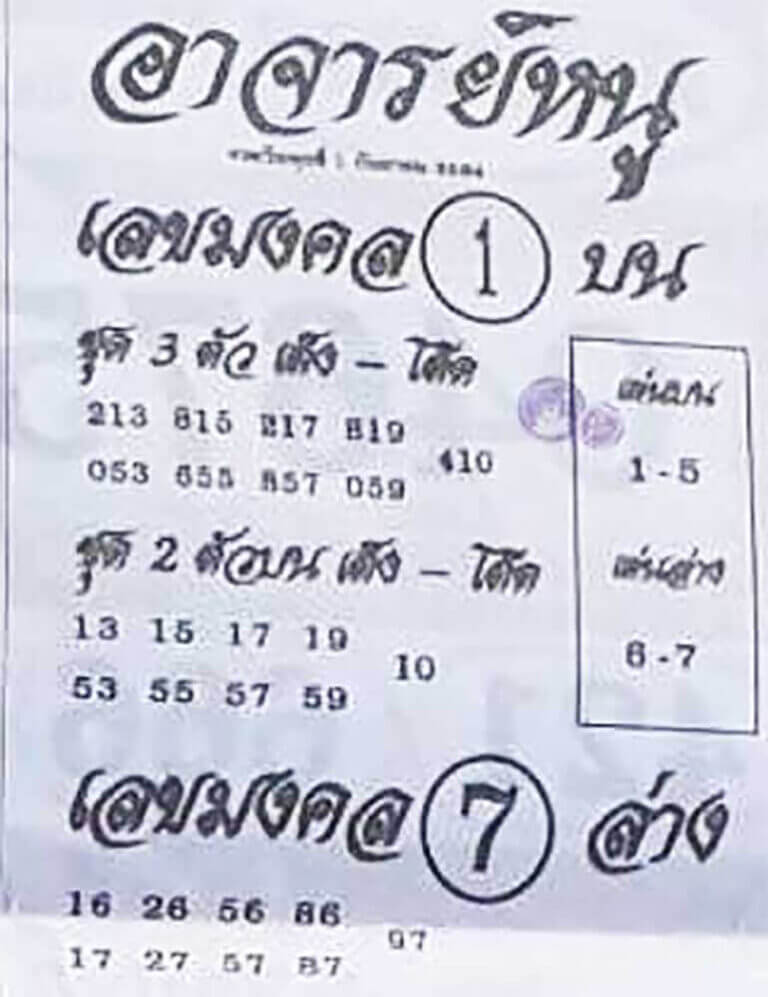 อาจารย์หนู
งวดวันพุธที่ 1 กันยายน 2564
เลขมงคล 1 บน
ชุด 3 ตัว เต็ง - โต๊ด
213 815 217 819
410
053 655 857 059
เด่นบน
1 - 5
ชุด 2 ตัวบน เต็ง - โต๊ด
13 15 17 19
10
53 55 57 59
เด่นล่าง
6 - 7
เลขมงคล 7 ล่าง
16 26 56 86
97
17 27 57 87